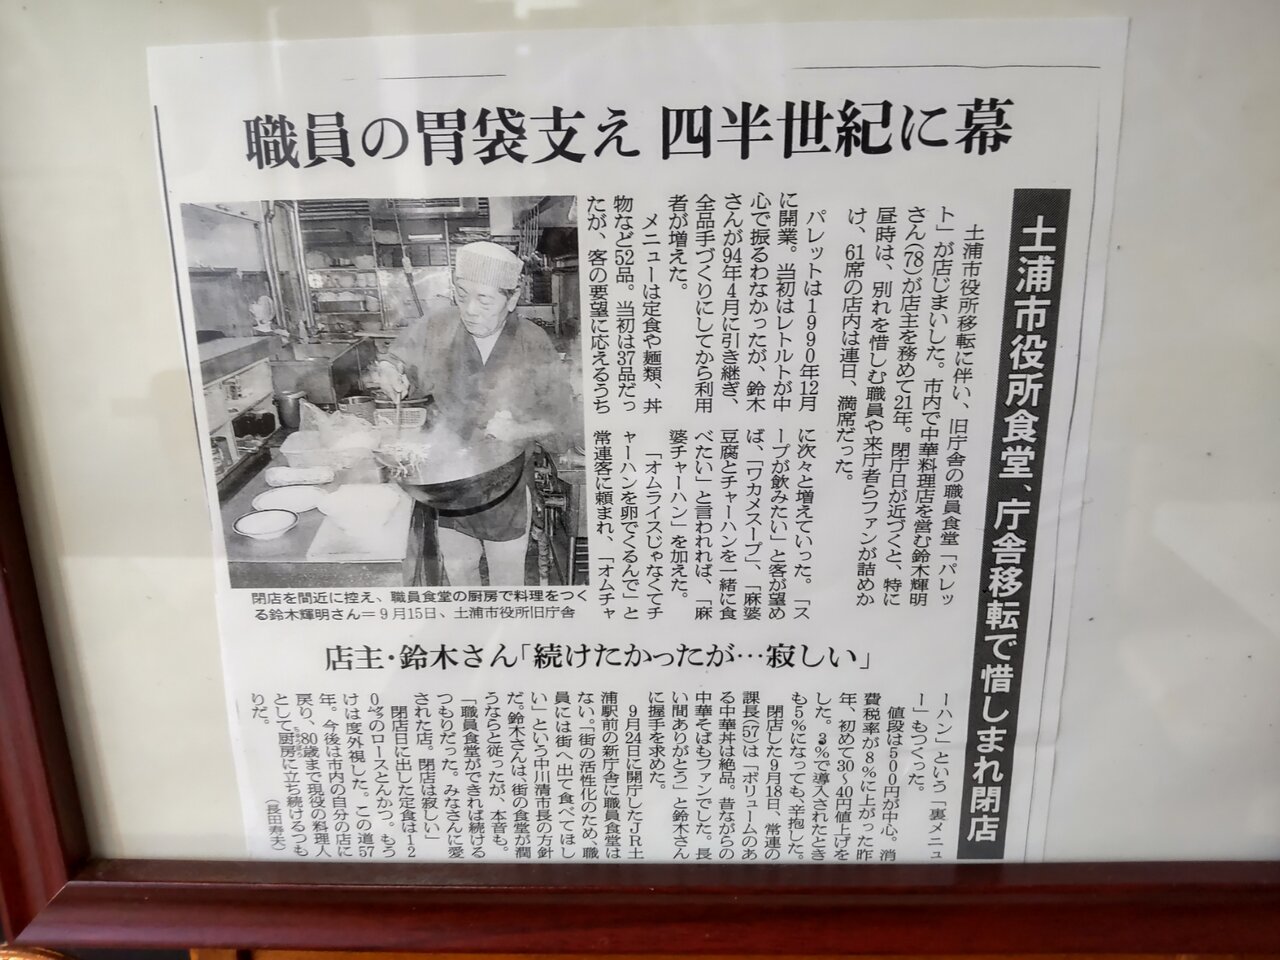 職員の胃袋支え 四半世紀に幕
土浦市役所食堂、庁舎移転で惜しまれ閉店
土浦市役所移転に伴い、旧庁舎の職員食堂「パレッ
ト」が店じまいした。市内で中華料理店を営む鈴木輝明
さん(78)が店主を務めて21年。閉庁日が近づくと、特に
昼時は、別れを惜しむ職員や来庁者らファンが詰めか
け、61席の店内は連日、満席だった。
パレットは1990年12月
に開業。当初はレトルトが中
心で振るわなかったが、鈴木
さんが94年4月に引き継ぎ、
全品手づくりにしてから利用
者が増えた。
メニューは定食や麺類、丼
物など52品。当初は37品だっ
たが、客の要望に応えるうち
に次々と増えていった。「ス
ープが飲みたい」と客が望め
ば、「ワカメスープ」、「麻婆
豆腐とチャーハンを一緒に食
べたい」と言われれば、「麻
婆チャーハン」を加えた。
「オムライスじゃなくてチ
ャーハンを卵でくるんで」と
常連客に頼まれ、「オムチャ
閉店を間近に控え、職員食堂の厨房で料理をつく
る鈴木輝明さん=9月15日、土浦市役所旧庁舎
店主・鈴木さん「続けたかったが…寂しい」
ーハン」という「裏メニュ
ー」もつくった。
値段は500円が中心。消
費税率が8%に上がった昨
年、初めて30~40円値上げを
した。3%で導入されたとき
も5%になっても、辛抱した。
閉店した9月18日、常連の
課長(57)は「ボリュームのあ
る中華丼は絶品。昔ながらの
中華そばもファンでした。長
い間ありがとう」と鈴木さん
に握手を求めた。
9月24日に開庁したJR土
浦駅前の新庁舎に職員食堂は
ない。「街の活性化のため、職
員には街へ出て食べてほし
い」という中川清市長の方針
だ。鈴木さんは、街の食堂が潤
うならと従ったが、本音も。
「職員食堂ができれば続ける
つもりだった。みなさんに愛
された店。閉店は寂しい」
閉店日に出した定食は12
0㌘のロースとんかつ。もう
けは度外視した。この道57
年。今後は市内の自分の店に
戻り、80歳まで現役の料理人
として厨房に立ち続けるつも
りだ。
(長田寿夫)